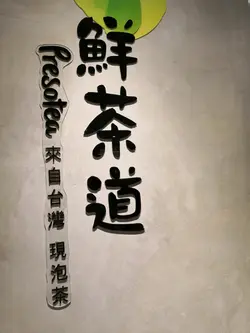 鮮茶道
Presotea 來自台灣 現泡茶